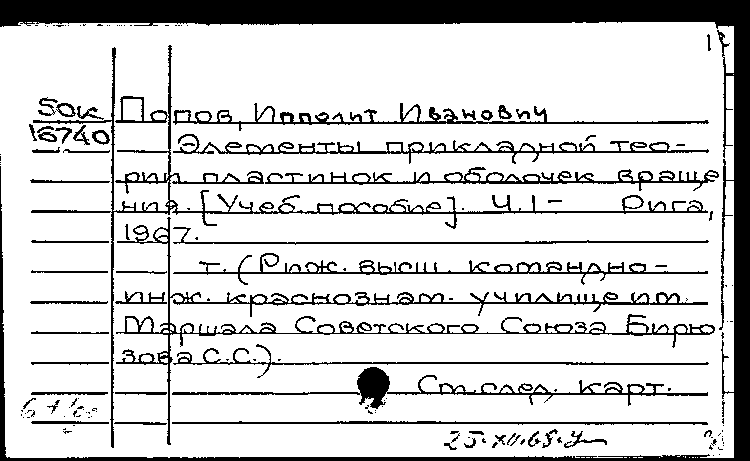 50к Попов, Ипполит Иванович
16740
Элементы прикладной тео-
рии пластинок и оболочек враще
ния. [Учеб. пособие]. Ч.1- Рига,
1967.
т. (Риж. высш. командно-
инж. краснознам. училище им.
Маршала Советского Союза Бирю
зова С.С.).
См. след. карт.